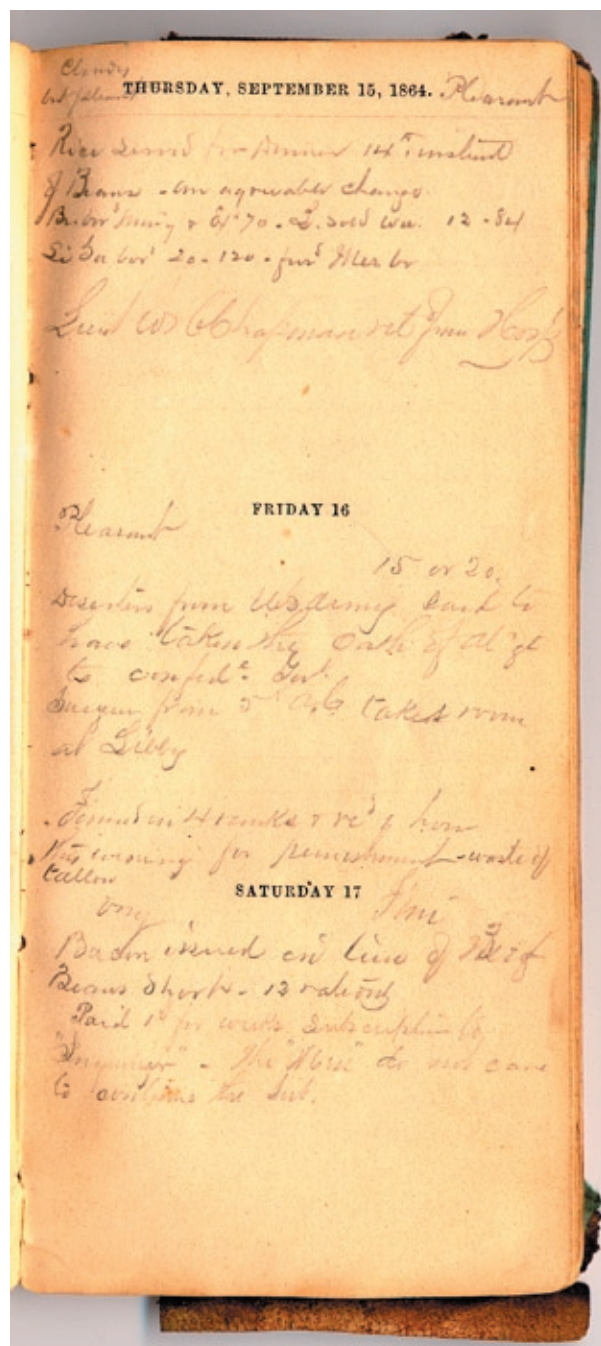 Cloudy
but pleasant THURSDAY, SEPTEMBER 15, 1864. Pleasant
Rice issued for Dinner 14th instead
of Beans - an agreeable change.
12 - 84
20 - 120 -
Lieut W C Chapman ret from Hosp
FRIDAY 16
Pleasant
15 or 20
Deserters from US Army said to
have taken the Oath of
to confed. Govt
Surgeon from 5th takes room
at Libby
Formed in 4 ranks & 1 hour
this evening for punishment - waste of
tallow
SATURDAY 17
Bacon issued in lieu of Beef
Beans Short - 12 rations
Paid 1 for weeks Subscription to
"Inquirer" - The "Mess" do not care
to continue the Sub.